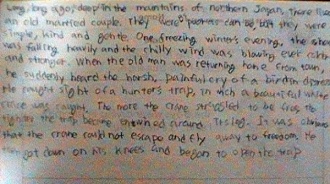 Long, long ago, deep in the mountains of northern Japan, there lived
an old married couple. They were poor as can be but they were
simple, kind and gentle. One freezing winters evening, the snow
was falling heavily and the chilly wind was blowing ever colder
and stronger. When the old man was returning home from town
he suddenly heard the harsh, painful cry of a bird in
He caught sight of a hunters trap, in which a beautiful white
crane was caught. The more the crane struggled to be free, the
tighter the trap became entwined around its leg. It was obvious
that the crane could not escape and fly away to freedom. He
got down on his knees and began to open the trap